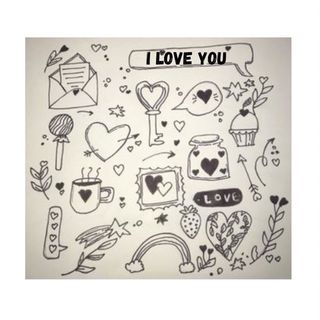 I LOVE YOU
LOVE